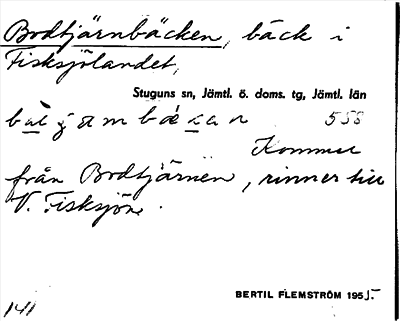 Bodtjärnbäcken, bäck i
Fisksjölandet,
Stuguns sn, Jämtl. ö. doms. tg, Jämtl. län
558
Kommer
från Bodtjärnen, rinner till
V. Fisksjön.
BERTIL FLEMSTRÖM 1955
141